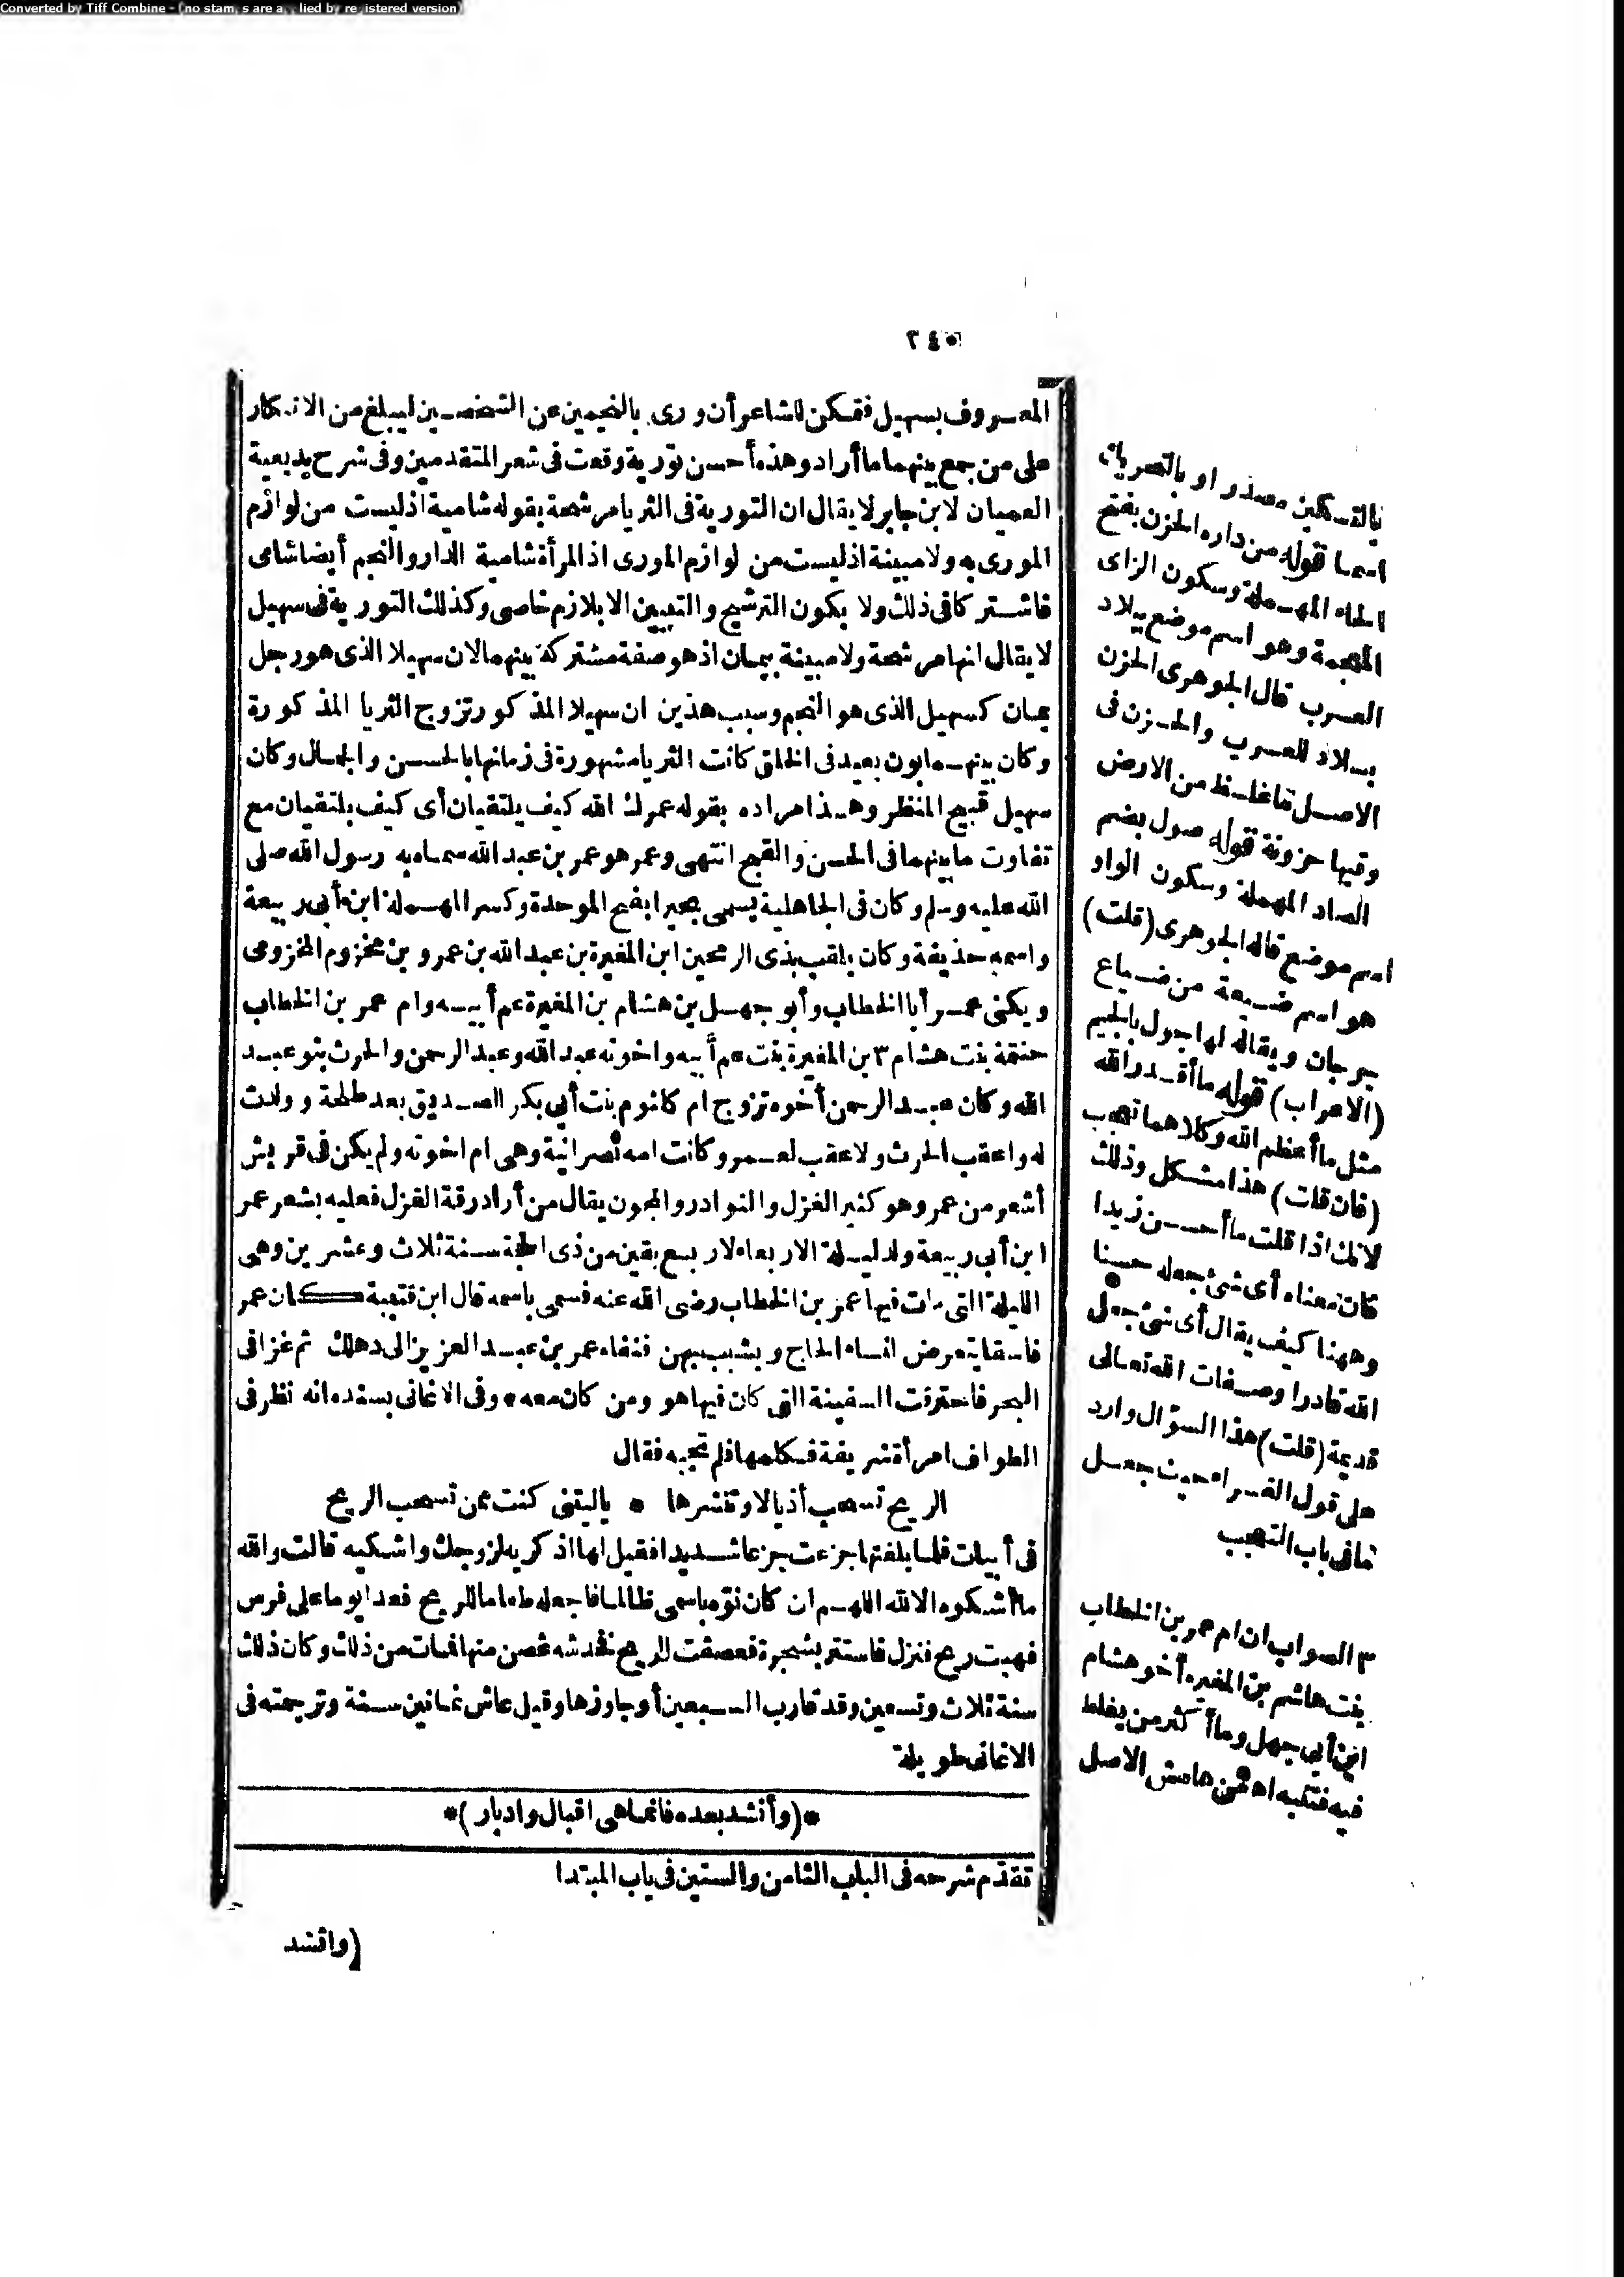 Converted by Tiff Combine - (no stamps are applied by registered version)
٢٤٠
المعروف بسهيل فتمكن للشاعر أن ورى بالنجمين عن الشخصين ليبلغ من الانكار
على من جمع بينهما ما أراد وهذه أحسن تورية وقعت فى شعر المتقدمين وفى شرح بديعية
العميان لابن جابر لا يقال ان التورية فى الثريا مرشحة بقوله شامية اذ ليست من لوازم
المورى به ولا مبينة اذ ليست من لوازم المورى اذ المرأة شامية الدار والنجم أيضا شامى
فاشتركا فى ذلك ولا يكون الترشيح والتبيين الا بلازم خاصى وكذلك التورية فى سهيل
لا يقال انها مرشحة ولا مبينة بيمان اذ هو صفة مشتركة بينهما لان سهيلا الذى هو رجل
يمان كسهيل الذى هو النجم وسبب هذين ان سهيلا المذكور تزوج الثريا المذكورة
وكان بينهما بون بعيد فى الخلق كانت الثريا مشهورة فى زمانها بالحسن والجمال وكان
سهيل قبيح المنظر وهذا مراده بقوله عمرك الله كيف يلتقيان أى كيف يلتقيان مع
تفاوت ما بينهما فى الحسن والقبح انتهى وعمر هو عمر بن عبد الله سماه به رسول الله صلى
الله عليه وسلم وكان فى الجاهلية يسمى بحيرا بفتح الموحدة وكسر المهملة ابن أبى ربيعة
واسمه حذيفة وكان يلقب بذى الرمحين ابن المغيرة بن عبد الله بن عمرو بن مخزوم المخزومى
ويكنى عمر أبا الخطاب وأبو جهل بن هشام بن المغيرة عم أبيه وام عمر بن الخطاب
حنتمة بنت هشام ٣ بن المغيرة بنت عم أبيه واخوته عبد الله وعبد الرحمن والحرث بنو عبد
الله وكان عبد الرحمن أخوه تزوج ام كلثوم بنت أبى بكر الصديق بعد طلحة وولدت
له واعقب الحرث ولا عقب لعمر وكانت امه نصرانية وهى ام اخوته ولم يكن فى قريش
أشعر من عمر وهو كثير الغزل والنوادر والمجون يقال من أراد رقة الغزل فعليه بشعر عمر
ابن أبى ربيعة ولد ليلة الاربعاء لاربع بقين من ذى الحجة سنة ثلاث وعشرين وهى
الليلة التى مات فيها عمر بن الخطاب رضى الله عنه فسمى باسمه قال ابن قتيبة كان عمر
فاسقا يتعرض لنساء الحاج ويشبب بهن فنفاه عمر بن عبد العزيز الى دهلك ثم غزا فى
البحر فاحترقت السفينة التى كان فيها هو ومن كان معه * وفى الاغانى بسنده انه نظر فى
الطواف امرأة شريفة فكلمها فلم تجبه فقال
الريح تسحب أذيالا وتنشرها * ياليتنى كنت ممن تسحب الريح
فى أبيات فلما بلغتها جزعت جزعا شديدا فقيل لها اذكريه لزوجك واشكيه قالت والله
ما أشكوه الا لله اللهم ان كان نوّه باسمى ظالما فاجعله طعاما للريح فعدا يوما على فرس
فهبت ريح فنزل فاستتر بشجرة فعصفت الريح فخدشه غصن منها فمات من ذلك وكان ذلك
سنة ثلاث وتسعين وقد قارب السبعين أو جاوزها وقيل عاش ثمانين سنة وترجمته فى
الاغانى طويلة
*(وأنشد بعده فانما هى اقبال وادبار)*
تقدّم شرحه فى الباب الثامن والستين فى باب المبتدا
(وانشد
بالتسكين مصدر او بالتحريك
اسما قوله من داره الحزن بفتح
الحاء المهملة وسكون الزاى
المعجمة وهو اسم موضع ببلاد
العرب قال الجوهرى الحزن
بلاد للعرب والحزن فى
الاصل ما غلظ من الارض
وفيها حزونة قوله صول بضم
الصاد المهملة وسكون الواو
اسم موضع قاله الجوهرى (قلت)
هو اسم ضيعة من ضياع
جرجان ويقال لها جول بالجيم
(الاعراب) قوله ما أقدر الله
مثل ما أعظم الله وكلاهما تعجب
(فان قلت) هذا مشكل وذلك
لانك اذا قلت ما أحسن زيدا
كان معناه أى شئ جعله حسنا
وههنا كيف يقال أى شئ جعل
الله قادرا وصفات الله تعالى
قديمة (قلت) هذا السؤال وارد
على قول الفراء حيث جعل
ما فى باب التعجب
٣ الصواب ان ام عمر بن الخطاب
بنت هاشم بن المغيرة أخو هشام
ابن أبى جهل وما أكثر من يغلط
فيه فتنبه اه من هامش الاصل